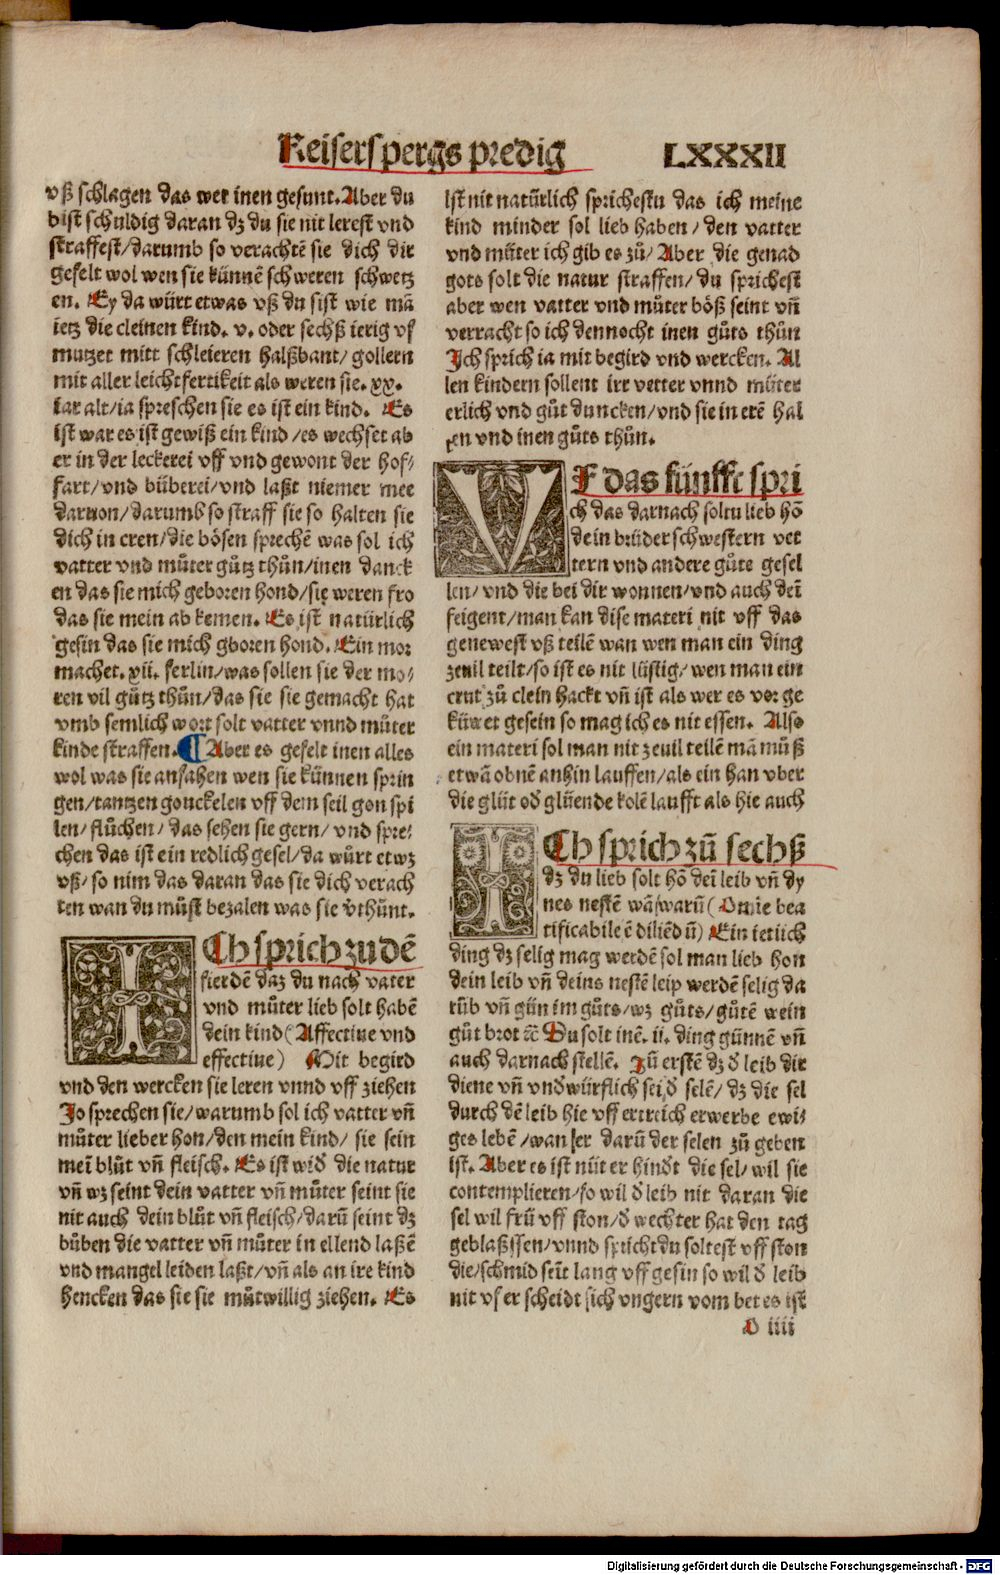 Keiserspergs predig LXXXII
vß schlagen das wer inen gesunt. Aber du
bist schuldig daran dz du sie nit lerest vnd
straffest/darumb so verachtē sie dich dir
gefelt wol wen sie künnē schweren schwetz
en. Ey da würt etwas vß du sist wie mā
ietz die cleinen kind. v. oder sechß ierig vf
mutzet mitt schleieren halßbant/ gollern
mit aller leichtfertikeit als weren sie. xx.
iar alt/ia spreschen sie es ist ein kind. Es
ist war es ist gewiß ein kind/es wechset ab
er in der leckerei vff vnd gewont der hof⸗
fart/vnd büberei/vnd laßt niemer mee
daruon/darumb so straff sie so halten sie
dich in eren/die bösen sprechē was sol ich
vatter vnd můter gůtz thůn/inen danck
en das sie mich geboren hond/sie weren fro
das sie mein ab kemen. Es ist natürlich
gesin das sie mich gboren hond. Ein mor
machet. xii. ferlin/was sollen sie der mo⸗
ren vil gůtz thůn/das sie sie gemacht hat
vmb semlich wort solt vatter vnnd můter
kinde straffen. ¶ Aber es gefelt inen alles
wol was sie anfahen wen sie künnen sprin
gen/tantzen gouckelen vff dem seil gon spi
len/ flůchen/ das sehen sie gern/ vnd spre⸗
chen das ist ein redlich gesel/da würt etwz
vß/ so nim das daran das sie dich verach
ten wan du můst bezalen was sie v̄thůnt.
ICh sprich zu dē
fierdē daz du nach vater
vnd můter lieb solt habē
dein kind (Affectiue vnd
effectiue) Mit begird
vnd den wercken sie leren vnnd vff ziehen
Jo sprechen sie/warumb sol ich vatter vñ
můter lieber hon/den mein kind/ sie sein
mei͂ blůt vñ fleisch. Es ist wid̄ die natur
vñ wz seint dein vatter vñ můter seint sie
nit auch dein blůt vñ fleisch/darū seint dz
bůben die vatter vñ můter in ellend laßē
vnd mangel leiden laßt/vñ als an ire kind
hencken das sie sie můtwillig ziehen. Es
Ist nit natürlich sprichestu das ich meine
kind minder sol lieb haben/den vatter
vnd můter ich gib es zů/ Aber die genad
gots solt die natur straffen/ du sprichest
aber wen vatter vnd můter böß seint vñ
verracht so ich dennocht inen gůts thůn
Ich sprich ia mit begird vnd wercken. Al
len kindern sollent irr vetter vnnd můter
erlich vnd gůt duncken/vnd sie in erē hal
ten vnd inen gůts thůn.
VF das fünfft spri
ch das darnach soltu lieb hō
dein brüder schwestern vet
tern vnd andere gůte gesel
len/ vnd die bei dir wonnen/vnd auch dei͂
feigent/man kan dise materi nit vff das
genewest vß teilē wan wen man ein ding
zeuil teilt/so ist es nit lüstig/wen man ein
crut zů clein hackt vñ ist als wer es vor ge
küwet gesein so mag ich es nit essen. Also
ein materi sol man nit zeuil teilē mā můß
etwā obnē anhin lauffen/als ein han vber
die glüt od̄ glüende kolē laufft als hie auch
ICh sprich zů sechß
dz du lieb solt hō dei͂ leib vñ dy
nes nestē wā/warū (Omne bea
tificabile ē diliēdū) Ein ietlich
ding dz selig mag werdē sol man lieb hon
dein leib vñ deins nestē leip werdē selig da
rūb vñ gün im gůts/wz gůts/gůtē wein
gůt brot ꝛc̄ Du solt inē. ii. ding günnē vñ
auch darnach stellē. Zū erstē dz d̄ leib dir
diene vñ vnd̄würflich sei d̄ selē/ dz die sel
durch dē leib hie vff ertreich erwerbe ewi⸗
ges lebē/wan er darū der selen zů geben
ist. Aber es ist nüt er hind̄t die sel/wil sie
contemplieren/so wil d̄ leib nit daran die
sel wil frū vff ston/d̄ wechter hat den tag
geblaßssen/vnnd spricht du soltest vff ston
die/schmid sei͂t lang vff gesin so wil d̄ leib
nit vf er scheidt sich vngern vom bet es ist
O iiii
Digitalisierung gefördert durch die Deutsche Forschungsgemeinschaft - DFG